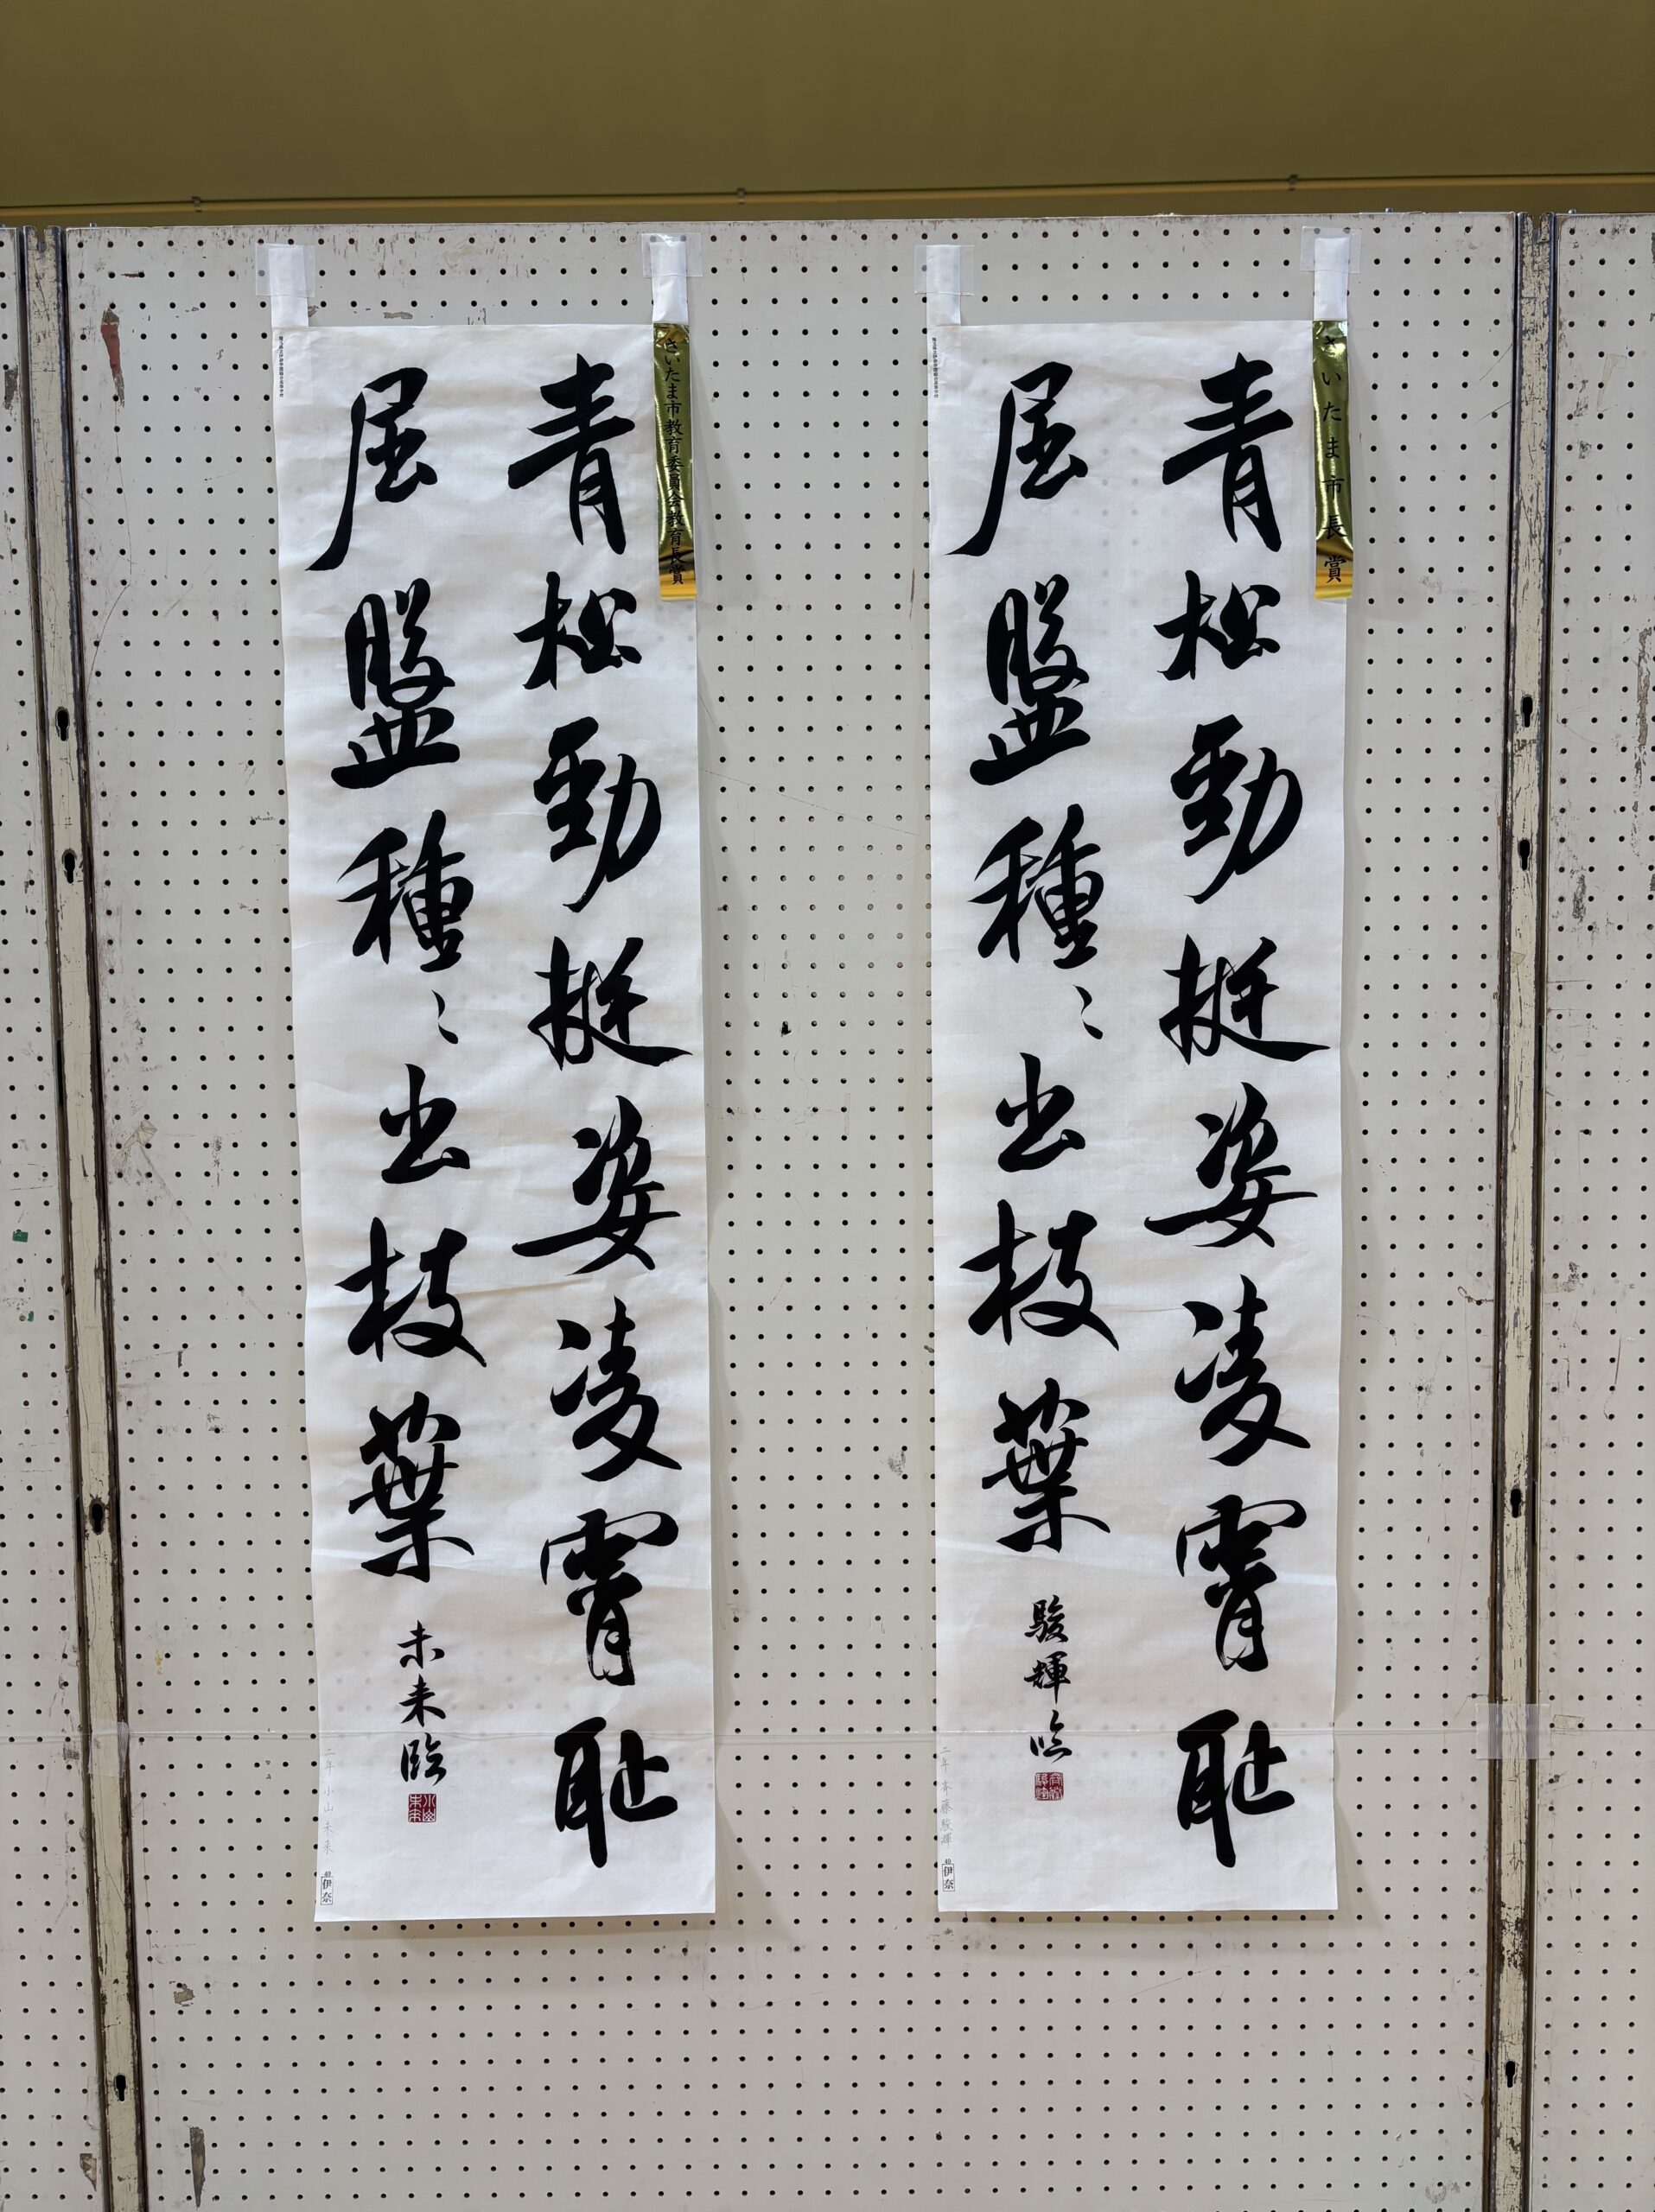 さいたま市長賞
青松勁挺姿凌霄恥
屈盤種〻出枝葉
駿輝臨
二年 斉藤駿輝
伊奈
さいたま市教育委員会教育長賞
青松勁挺姿凌霄恥
屈盤種〻出枝葉
未来臨
小山未来
二年 小山未来
伊奈